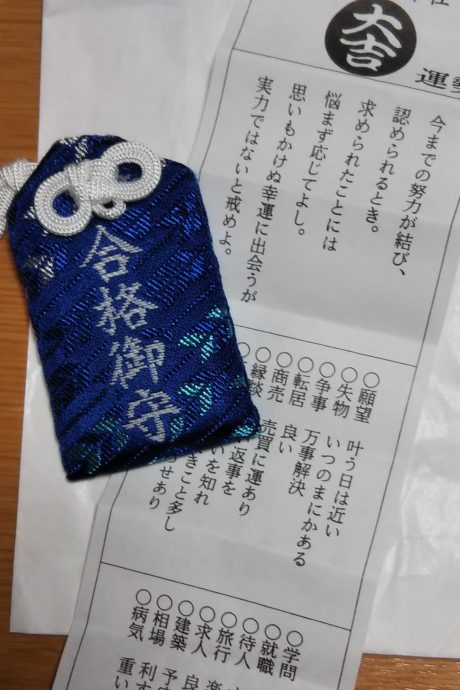 合格御守
大吉
運勢
今までの努力が結び、
認められるとき。
求められたことには
悩まず応じてよし。
思いもかけぬ幸運に出会うが
実力ではないと戒めよ。
○願望 叶う日は近い
○失物 いつのまにかある
○争事 万事解決
○転居 良い
○商売 売買に運あり
○縁談 返事を
いを知れ
きこと多し
せあり
○学問
○就職
○待人
○旅行 楽
○求人 良
○建築 予
○相場 利す
○病気 重い